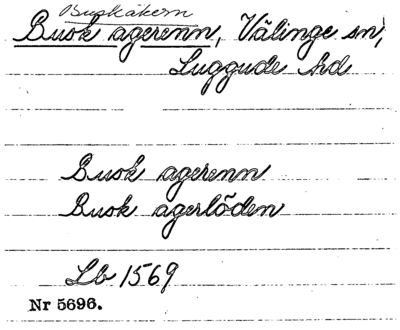 Buskåkern
Busk agerenn, Välinge sn,
Luggude hd
Busk agerenn
Busk agerlöden
Lb 1569
Nr 5696.